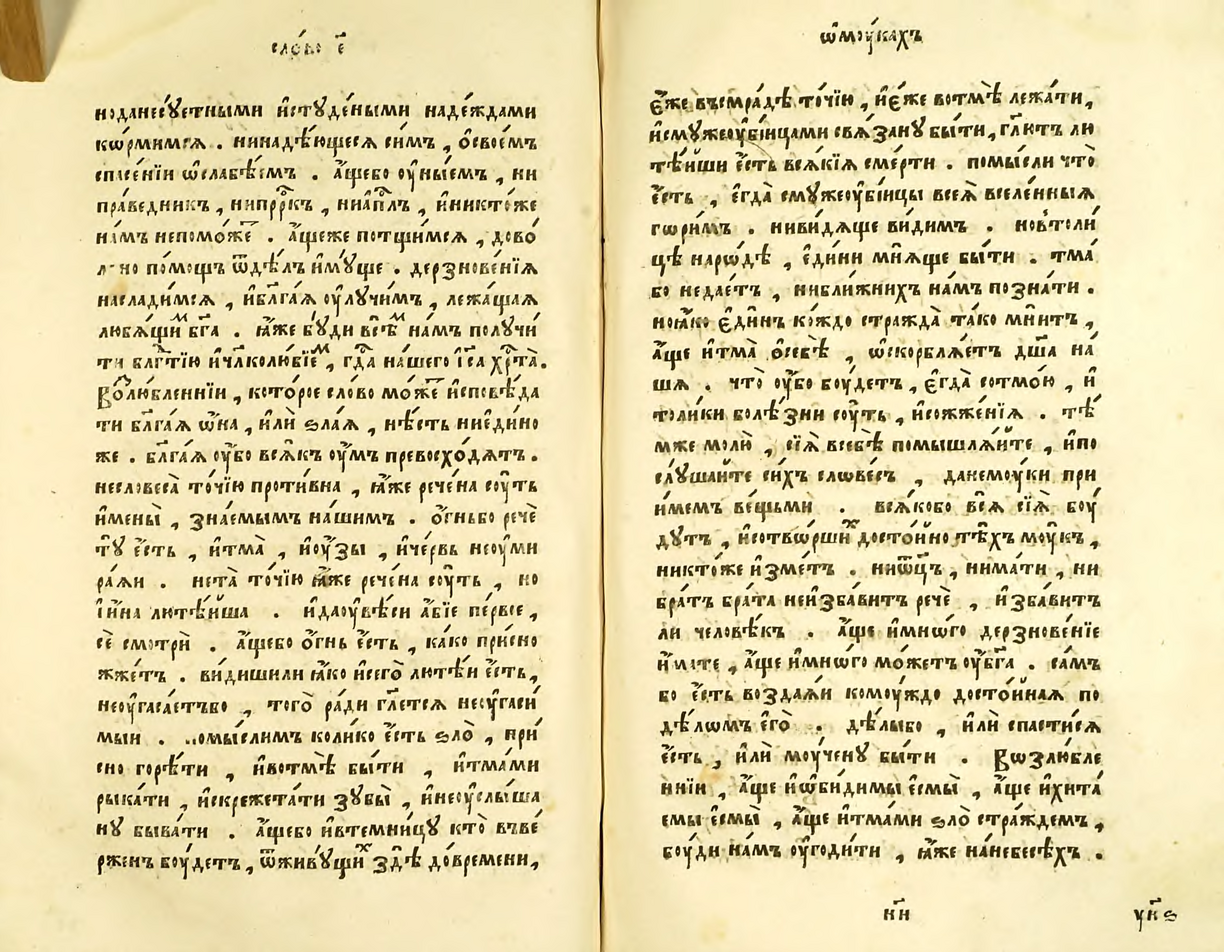 сло́во е҃
но да не су́етными и҆ студе́ными наде́ждами
кѡ́рмимсѧ . ни надѣ́ющесѧ си́мъ , ѻ҆ свое́мъ
спⷭ҇е́нїи ѡ҆слабѣ́емъ . а҆́ще бо оу҆ны́емъ , ни
пра́ведникъ , ни прⷪ҇ркъ , ни а҆пⷭ҇лъ , и҆ никто́же
на́мъ не помо́же . а҆́ще же потщи́мсѧ , дово́
лно по́мощъ ѿ дѣ́лъ и҆му́ще . дерзнове́нїѧ
наслади́мсѧ , и҆ бл҃га́ѧ оу҆лучи́мъ , лежа́щаѧ
лю́бѧщимъ бг҃а . ꙗ҆́же бу́ди всѣ́мъ на́мъ получи́
ти бл҃гтїю и҆ чл҃колю́бїемъ , гⷭ҇да на́шего і҆с҃а хрⷭ҇та̀.
Воⷥлю́бленнїи , кото́рое сло́во мо́же и҆сповѣ́да
ти бл҃га́ѧ ѡ҆́на , и҆лѝ ѕла́ѧ , нѣ́сть ни є҆ди́но
же . бл҃га́ѧ оу҆́бо всѧ́къ оу҆́мъ превосхо́дѧтъ .
не словеса̀ то́чїю проти́вна , ꙗ҆́же рече́на су́ть
и҆мены̀ , зна́емымъ на́шимъ . ѻ҆́гнь бо речѐ
ту̀ є҆́сть , и҆ тма̀ , и҆ оу҆́зы , и҆ че́рвь не оу҆ми
ра́ѧи . не та̀ то́чїю ꙗ҆́же рече́на су́ть , но
і҆ и҆́на лютѣ́йша . и҆ да оу҆вѣ́си а҆́бїе пе́рвое ,
сѐ смотрѝ . а҆́ще бо ѻ҆́гнь є҆́сть , ка́ко при́сно
жже́тъ . ви́диши ли ꙗ҆́ко и҆ сего̀ лютѣ́и є҆́сть ,
не оу҆гаса́етъ бо , того̀ ра́ди гл҃етсѧ не оу҆гаси́
мыи . помы́слимъ коли́ко є҆́сть ѕло̀ , при́
сно горѣ́ти , и҆ во тмѣ̀ бы́ти , и҆ тма́ми
рыка́ти , и҆ скрежета́ти зу́бы , и҆ не оу҆слы́ша
ну быва́ти . а҆́ще бо и҆ в темни́цу кто̀ въве́
рженъ бу́детъ , ѿ живу́щихъ здѣ̀ до вре́мени ,
ѡ҆ му́кахъ
є҆́же въ смра́дѣ то́чїю , и҆ є҆́же во тмѣ̀ лежа́ти ,
и҆ с мужеоу҆бі́йцами свѧ́зану бы́ти , гл҃ютъ лю
тѣ́йши є҆́сть всѧ́кїѧ сме́рти . помы́сли что̀
є҆́сть , є҆гда̀ с мужеоу҆бі́йцы всеѧ̀ вселе́нныѧ
гори́мъ . ни ви́дѧще ви́димъ . но в толи́
цѣ наро́дѣ , є҆ди́ни мнѧ́ще бы́ти . тма̀
бо не дае́тъ , ни бли́жнихъ на́мъ позна́ти .
но ꙗ҆́ко є҆ди́нъ ко́ждо стражда̀ та́ко мни́тъ ,
а҆́ще и҆ тма̀ ѻ҆ себѣ̀ , ѡ҆скорблѧ́етъ дш҃а на́
шѧ . что̀ оу҆́бо бу́детъ , є҆гда̀ со тмо́ю , и҆
толи́ки болѣ́зни су́ть , и҆ сожже́нїѧ . тѣ́
мже молю̀ , сїѧ̀ в себѣ̀ помышлѧ́йте , и҆ по
слу́шайте си́хъ слове́съ , да не му́ки при
и҆́мемъ ве́щьми . всѧ́ко бо всѧ̀ сїѧ̀ бу́
дутъ , и҆ сотво́ршихъ досто́йно тѣ́хъ му́къ ,
никто́же и҆́зметъ . ни ѻ҆ц҃ъ , ни ма́ти , ни
бра́тъ бра́та не и҆зба́витъ речѐ , и҆зба́витъ
ли человѣ́къ . а҆́ще и҆ мно́го дерзнове́нїе
и҆́мате , а҆́ще и҆ мно́го мо́жетъ оу҆ бг҃а . са́мъ
бо є҆́сть воздаѧ́и кому́ждо досто́йнаѧ по
дѣ́ломъ є҆го̀ . дѣ́лы бо , и҆лѝ спасти́сѧ
є҆́сть , и҆лѝ му́чену бы́ти . Возлю́бле
ннїи , а҆́ще и҆ ѡ҆би́димы є҆смы̀ , а҆́ще и҆ хита́
емы є҆смы̀ , а҆́ще и҆ тма́ми ѕло̀ стра́ждемъ ,
бу́ди на́мъ оу҆годи́ти , ꙗ҆́же на небесѣ́хъ .
н҃и
ун҃ѕ